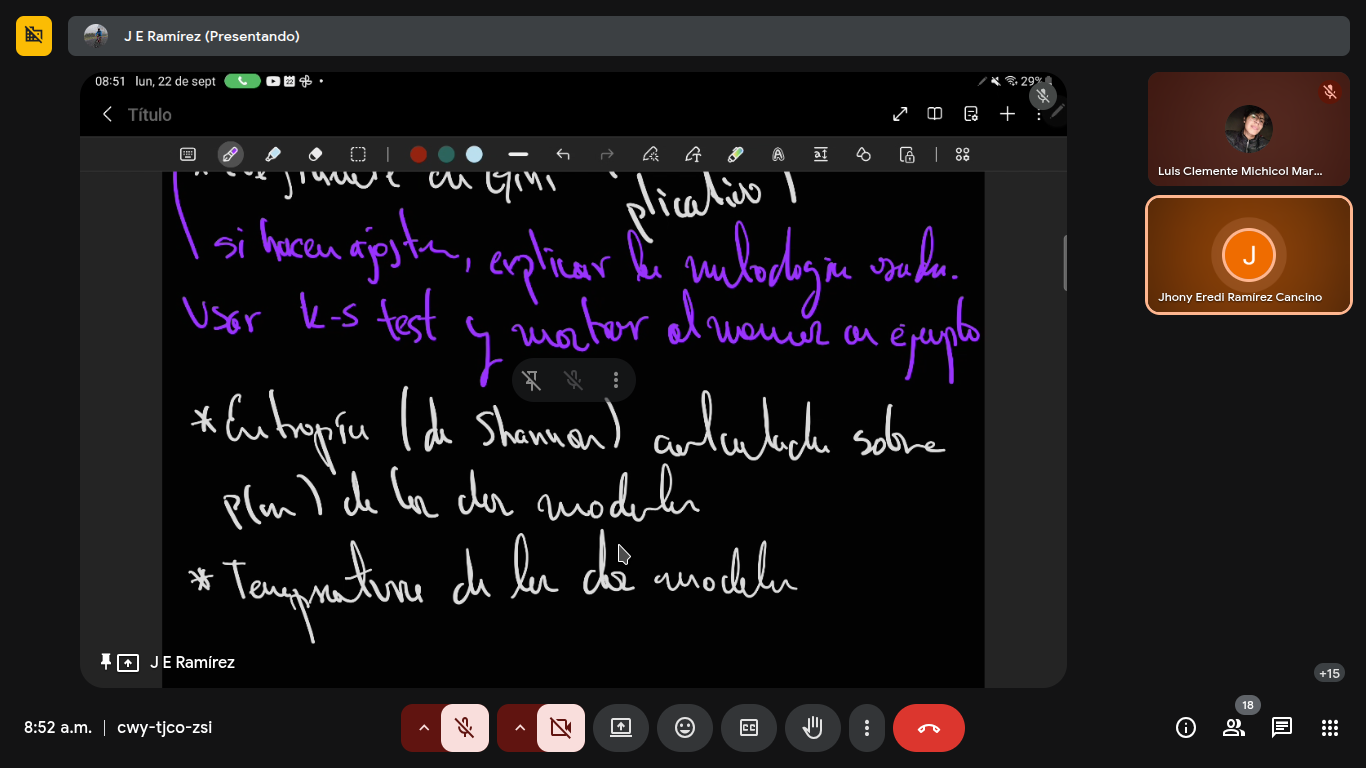 J E Ramírez (Presentando)
08:51 lun, 22 de sept
29%
Título
de Gini
plicativo)
si hacen ajuste, explicar la metodología usada.
Usar k-s test y mostrar al menos un ejemplo
* Entropía (de Shannon) calculada sobre
p(m) de los dos modelos
* Temperatura de los dos modelos
J E Ramírez
Luis Clemente Michicol Mar...
J
Jhony Eredi Ramírez Cancino
+15
8:52 a.m. | cwy-tjco-zsi
18